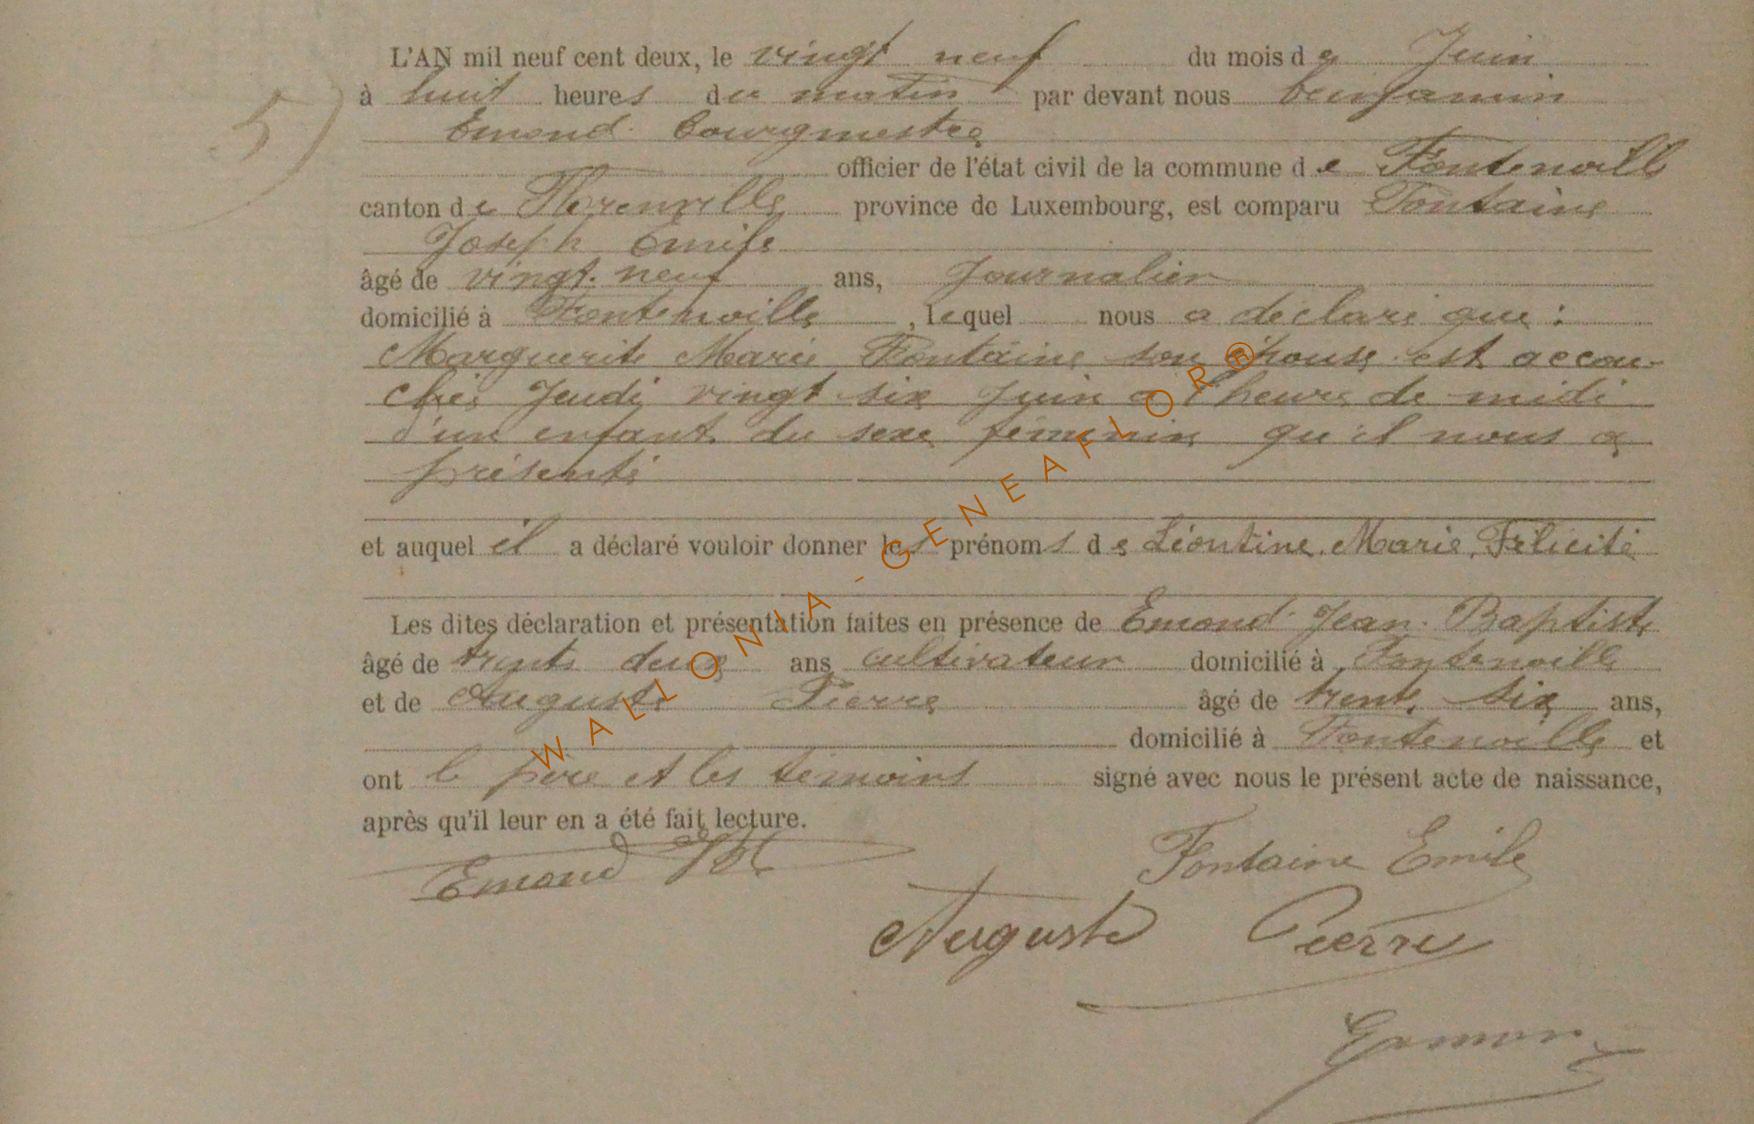 L'AN mil neuf cent deux, le vingt neuf du mois de Juin
5)
à huit heures du matin par devant nous benjamin
Emond Bourgmestre
officier de l'état civil de la commune de Fontenoille
canton de Florenville province de Luxembourg, est comparu Fontaine
Joseph Emile
âgé de vingt-neuf ans, Journalier
domicilié à Fontenoille, lequel nous a déclaré que :
Marguerite Marie Fontaine son épouse est accou-
chée Jeudi vingt six Juin a l'heure de midi
d'un enfant du sexe féminin qu'il nous a
présenté
et auquel il a déclaré vouloir donner les prénoms de Léontine, Marie, Félicité
Les dites déclaration et présentation faites en présence de Emond Jean-Baptiste
âgé de trente deux ans cultivateur domicilié à Fontenoille
et de Auguste Pierre âgé de trente six ans,
domicilié à Fontenoille et
ont le père et les témoins signé avec nous le présent acte de naissance,
après qu'il leur en a été fait lecture.
Emond JBt Fontaine Emile
Auguste Pierre
Emond
WALLONIA-GENEAFLOR®